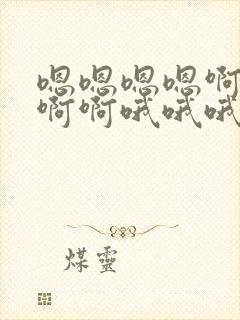 嗯嗯嗯嗯啊
啊啊哦哦哦
煤靈